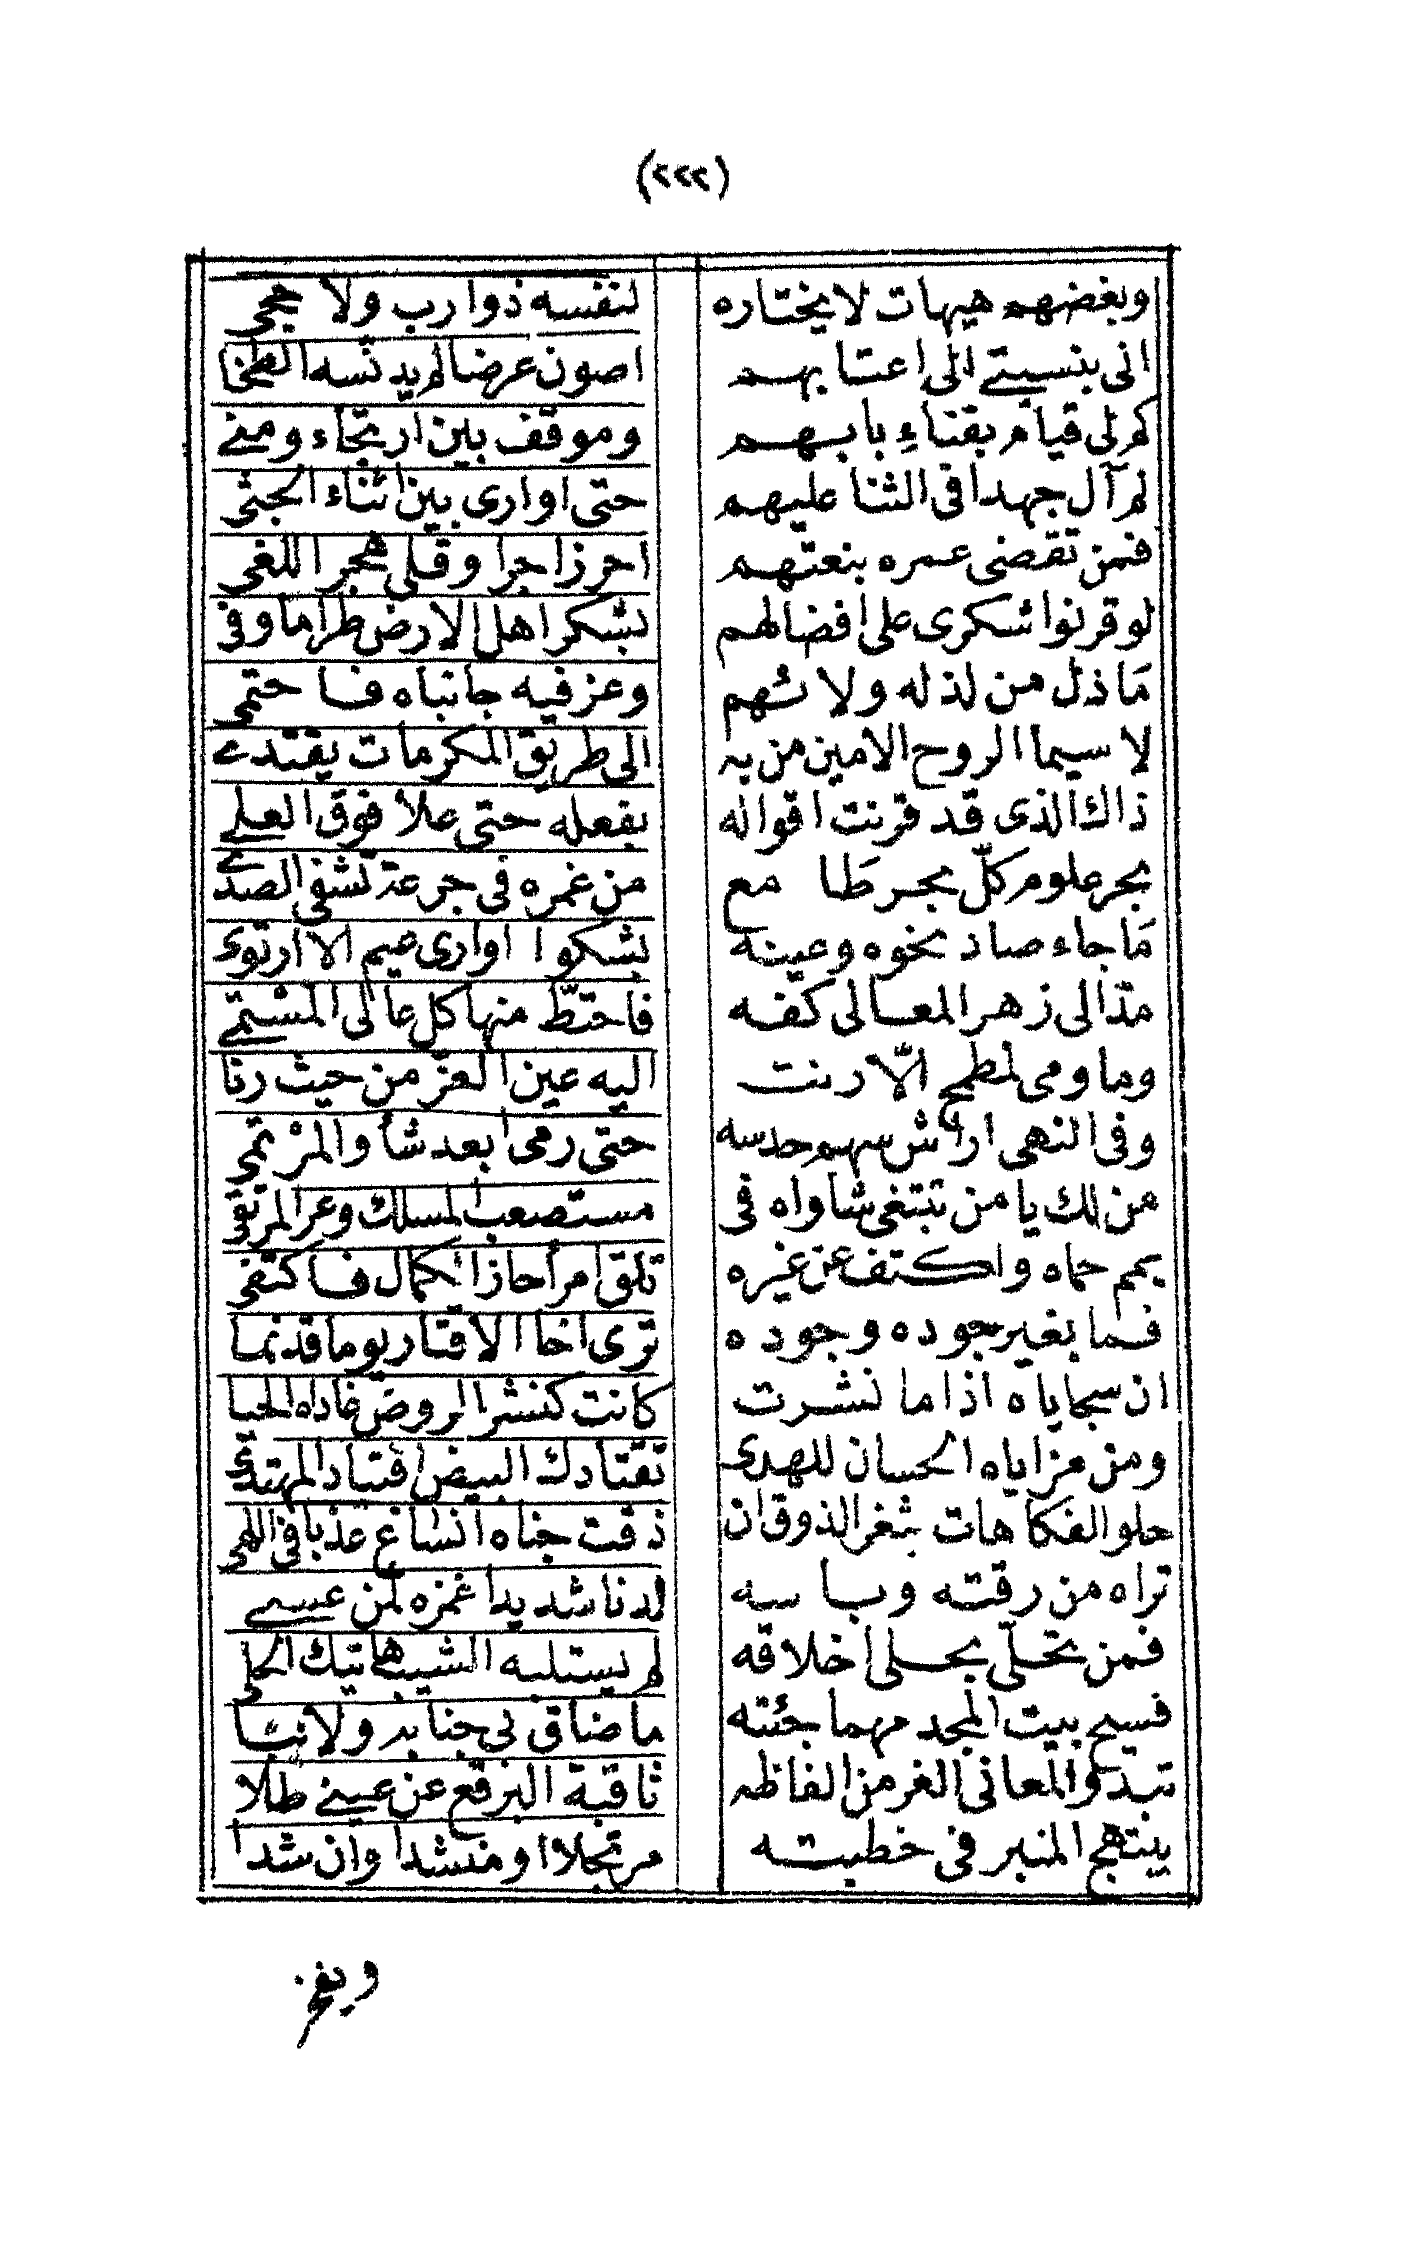 (٢٢٢)
وبغضهم هيهات لا يختاره لنفسه ذو ارب ولا حجى
انى بنسبتے الى اعتابهم اصون عرضا لم يدنسه الطخا
كم لى قيام بفناء بابهم وموقف بين ارتجاء ومنے
لم آل جهدا فى الثنا عليهم حتى اوارى بين اثناء الجثى
فمن تقضى عمره بنعتهم احرز اجرا وقلى هجر اللغى
لو قرنوا شكرى على افضالهم بشكر اهل الارض طرا ما وفى
مَا ذل من لذ له ولا لهم وعز فيه جانباه فاحتمى
لا سيما الروح الامين من به الى طريق المكرمات يقتدے
ذاك الذى قد قرنت اقواله بفعله حتى علا فوق العلے
بحر علوم كلّ بحر طَا مع من غمره فى جرعة تشفى الصدے
مَا جاء صاد نحوه وعينه تشكو اوارى هيم الا ارتوى
مدّ الى زهر المعالى كفه فاحتطّ منها كل عالى المستمے
وما ومى لمطمح الّا رنت اليه عين العزّ من حيث رنا
وفى النهى اراش سهم حدسه حتى رمى ابعد شأو المرتمى
من لك يا من تبتغى شاواه فى مستصعب المسلك وعر المرتقى
يمم حماه واكتف عن غيره تلق امرأ حاز الكمال فاكتفى
فما بغير جوده وجوده ترى اخا الاقتار يوما قد نما
ان سجاياه اذا ما نشرت كانت كنشر الروض غاداه الحيا
ومن مزاياه الحسان للهدى تقتادك البيض اقتياد المهتدى
حلو الفكاهات بثغر الذوق ان ذقت جناه انساغ عذبا فى اللهى
تراه من رقته وباسه لدنا شديدا غمزه لمن عسے
فمن تحلّى بحلى اخلاقه لم يستلبه الشيب هاتيك الحلى
فسيح بيت المجد مهما جئته ما ضاق بى جنابه ولا نبا
تبدو المعانى الغر من الفاظه ثاقبة البرقع عن عينے طلا
ينتهج المنبر فى خطبته مرتجلا او منشدا وان شدا